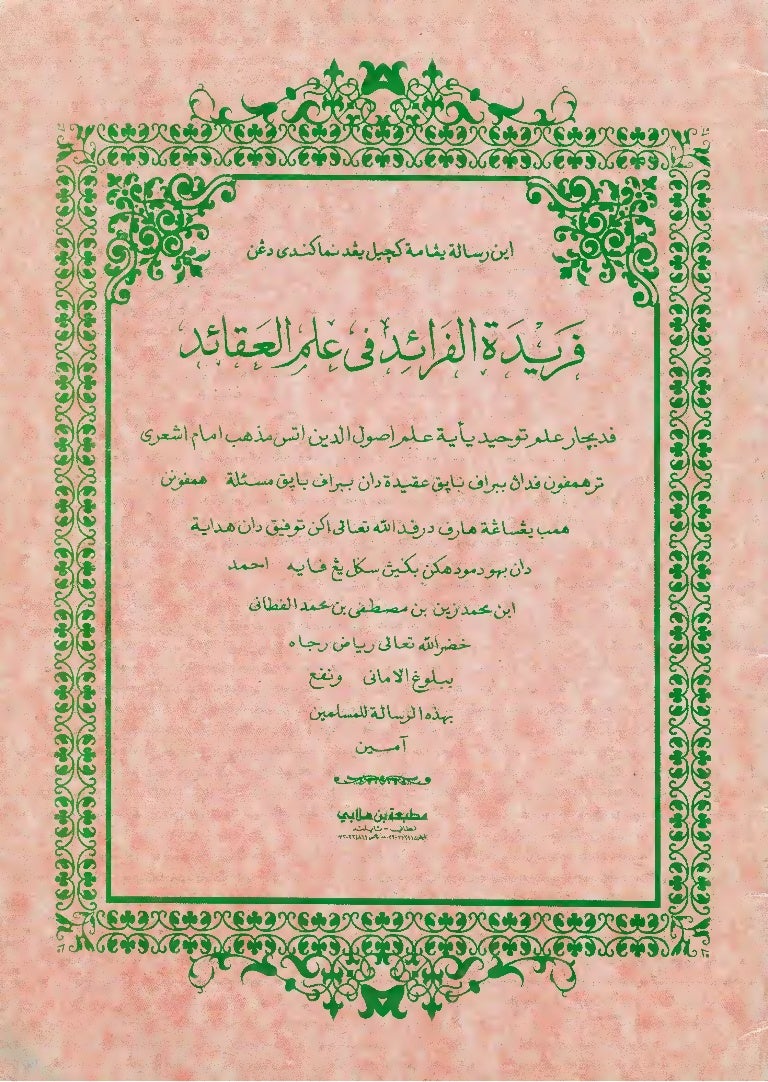 اين رسالة يڠ امة كچيل يڠ دنماكندي دڠن
فَرِيْدَةُ الفَرَائِدِ فى عِلمِ العَقَائد
فد بچار علم توحيد يأيت علم اصول الدين اتس مذهب امام اشعرى
ترهمفون فدان ببراف باپق عقيدة دان ببراف باپق مسئلة همفونن
همب يڠ ساڠة هارف درفد الله تعالى اكن توفيق دان هداية
دان بهو دمودهكن بكيڽ سكل يڠ فايه احمد
ابن محمد زين بن مصطفى بن محمد الفطانى
خضر الله تعالى رياض رجاه
ببلوغ الامانى ونفع
بهذه الرسالة للمسلمين
آمـــين
مطبعة بن هلابي